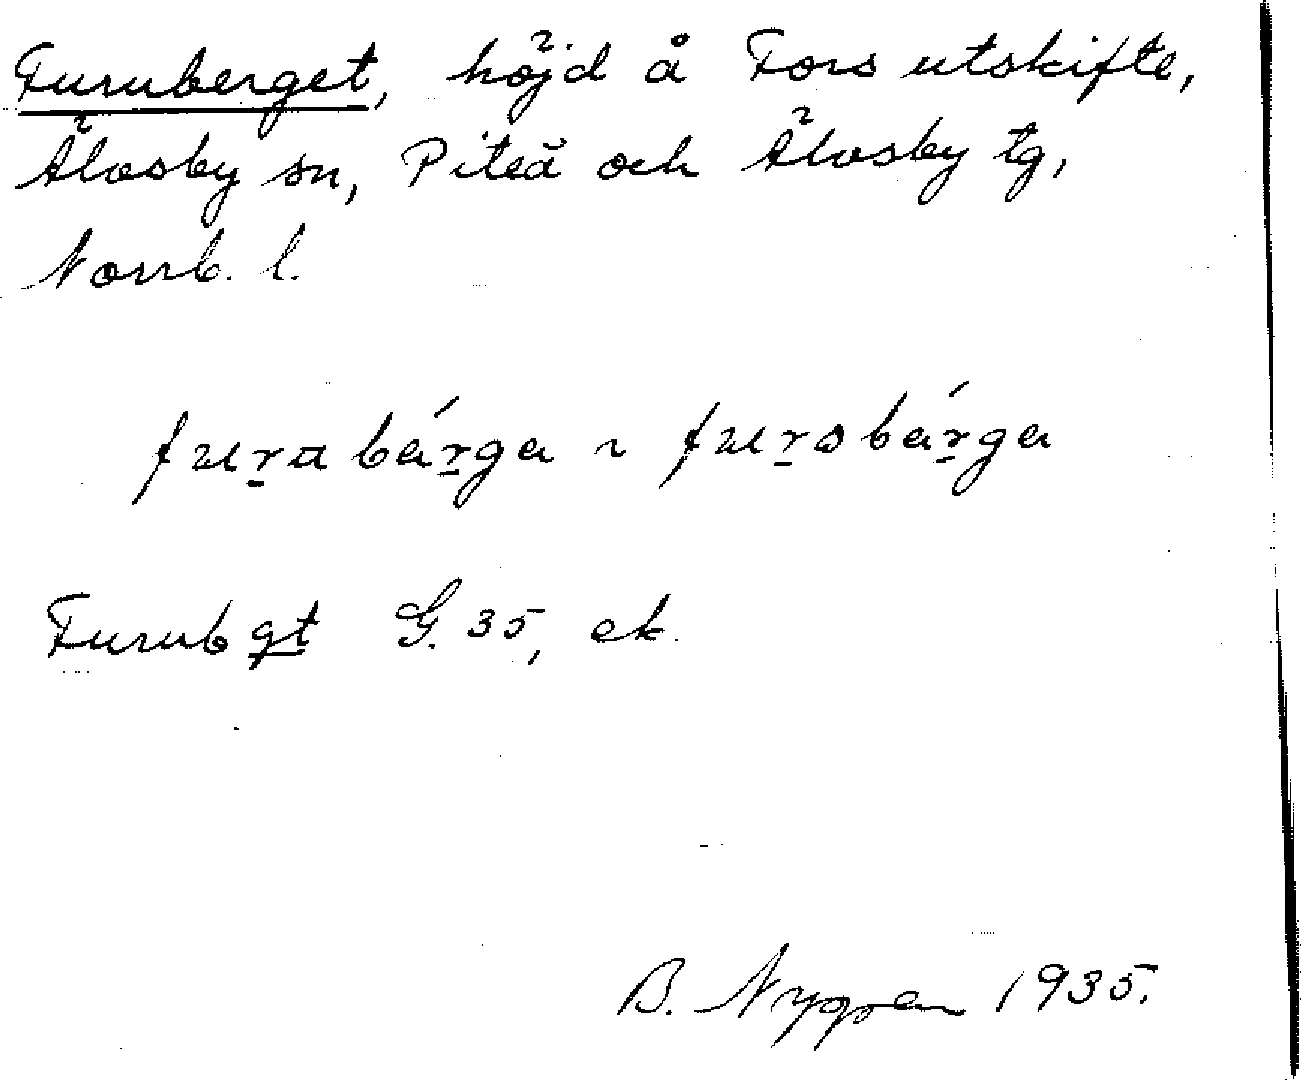 Furuberget, höjd å Fors utskifte,
Älvsby sn, Piteå och Älvsby tg,
Norrb. l.
furabárga ~ furobárga
Furubgt G. 35, ek.
B. Nygren 1935.